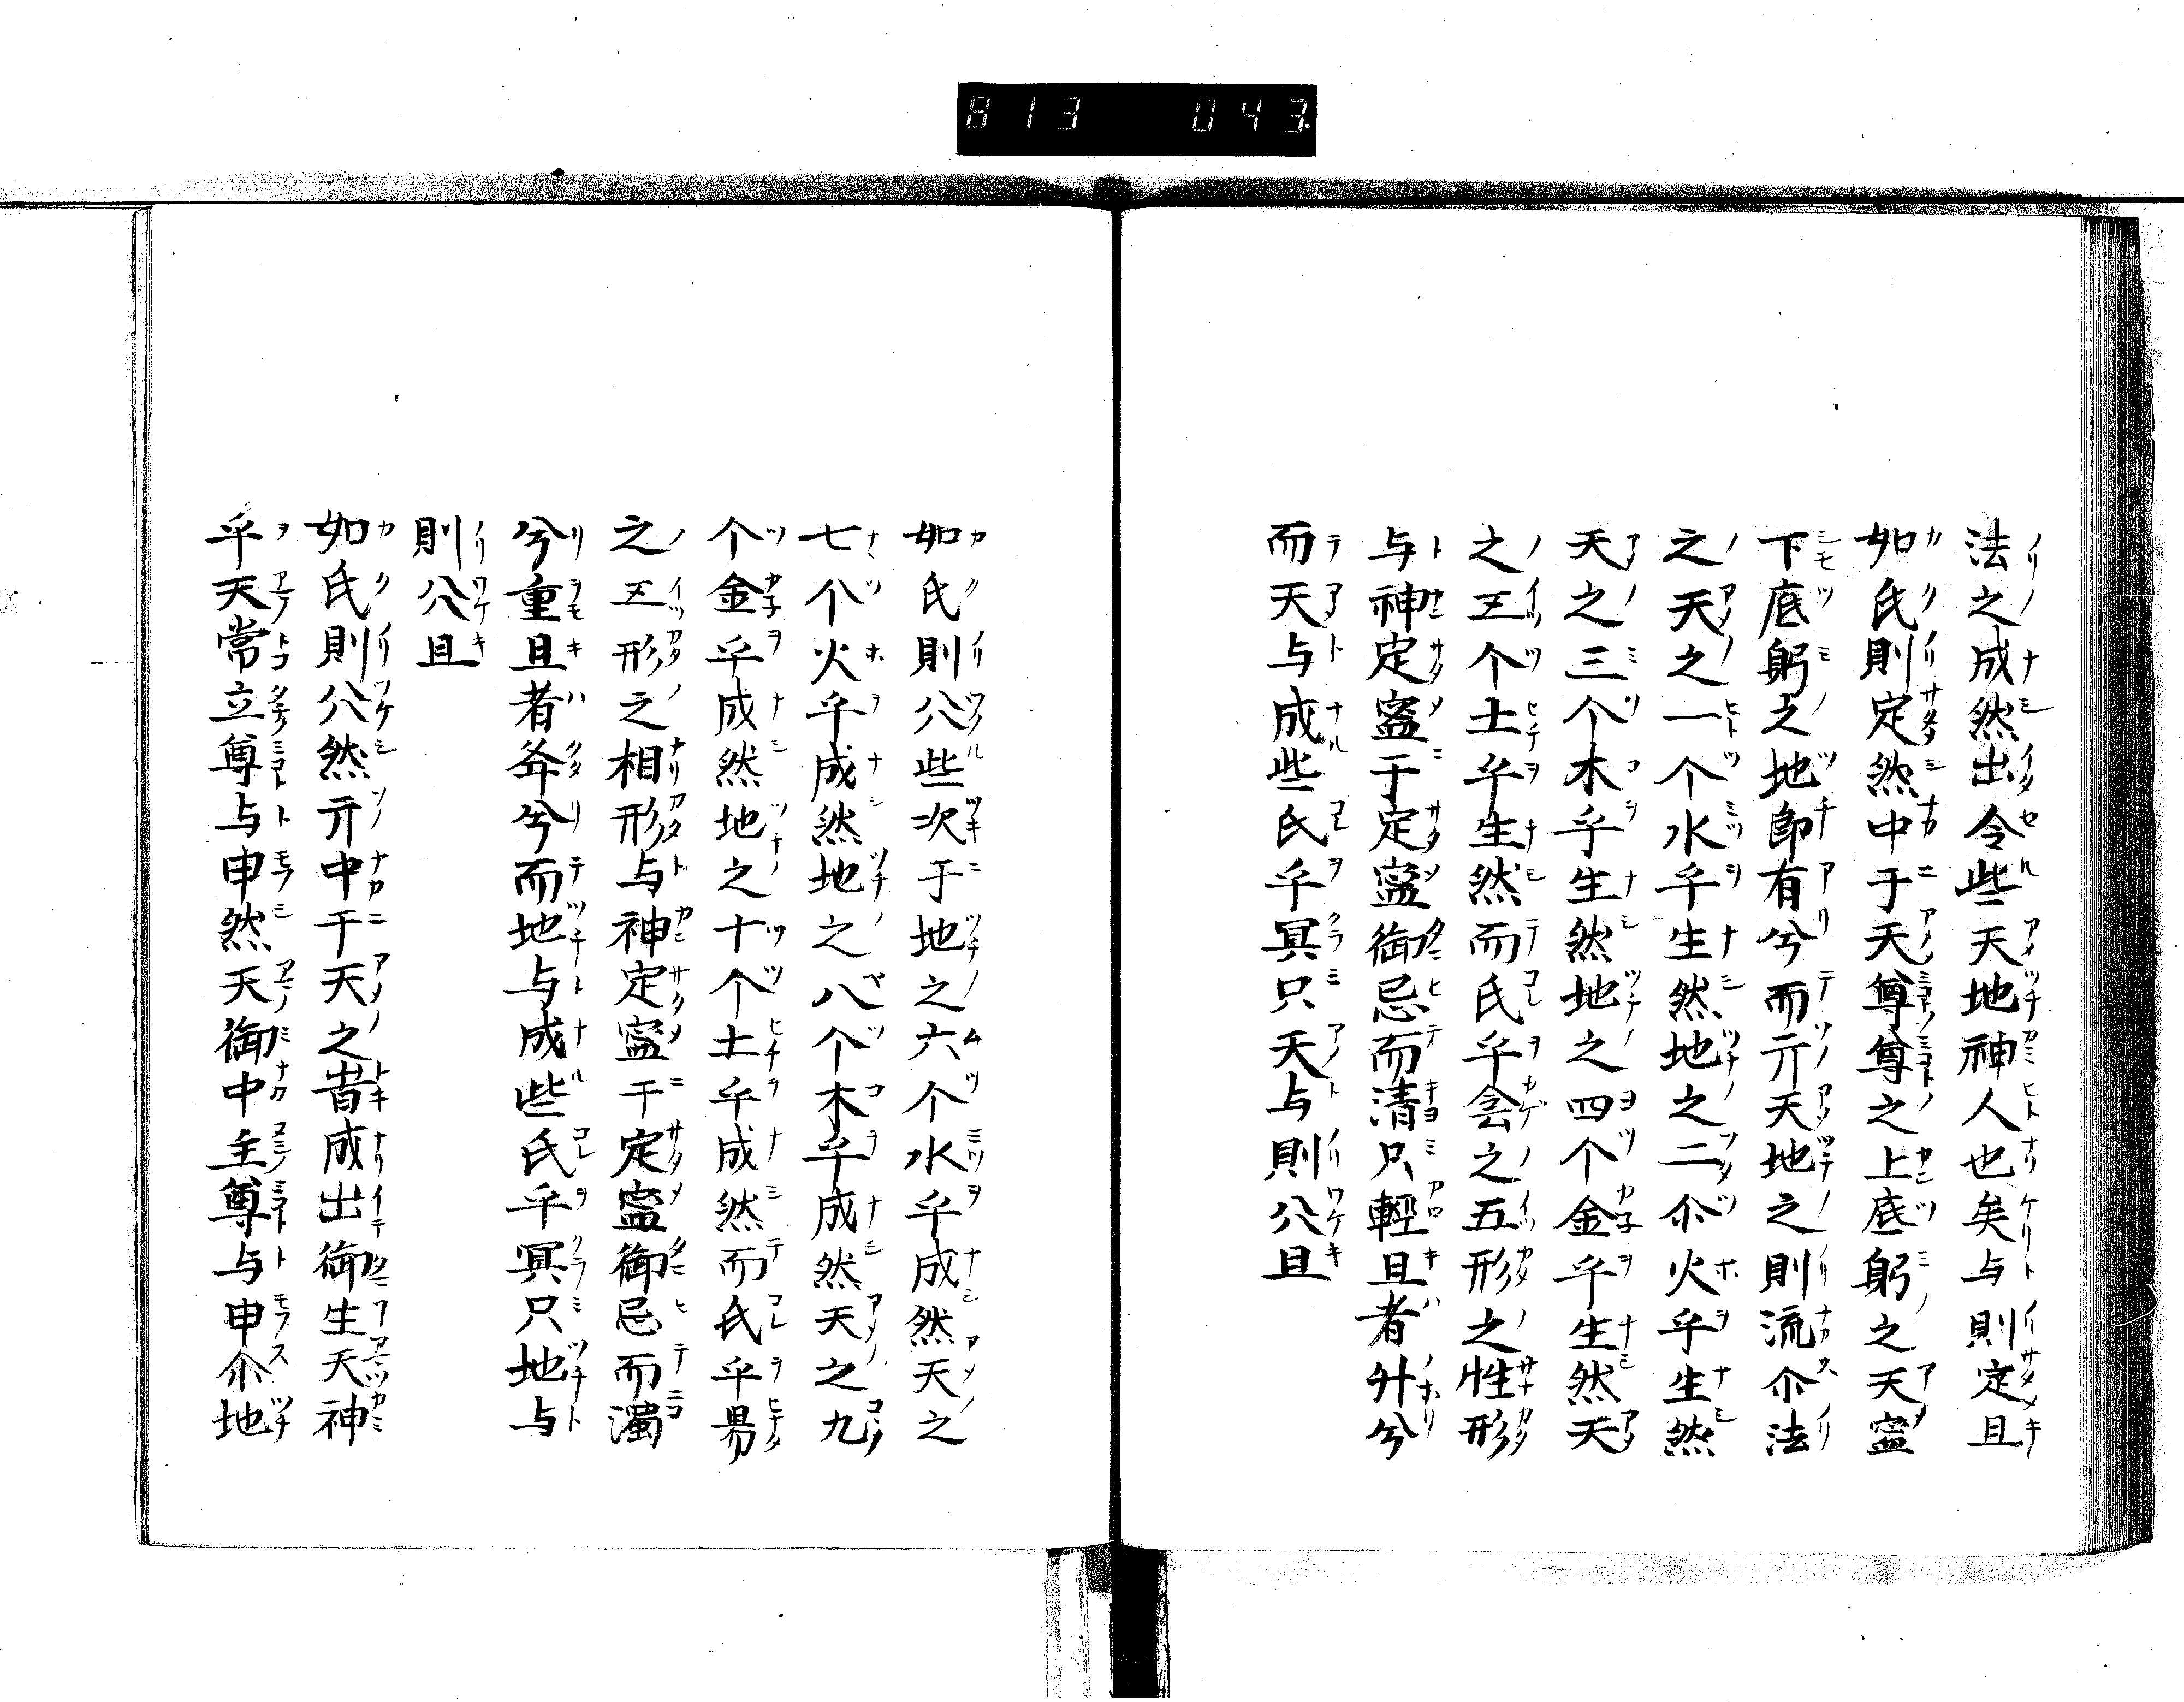 813 043.
法之成然出令些天地神人也矣与則定且
如氏則定然中于天尊尊之上底躬之天寍
下底躬之地即有兮而亓天地之則流尒法
之天之一个水乎生然地之二尒火乎生然
天之三个木乎生然地之四个金乎生然天
之五个土乎生然而氏乎侌之五形之性形
与神定寍于定寍御忌而清只輕且者升兮
而天与成些氏乎冥只天与則公且
如氏則公些次于地之六个水乎成然天之
七个火乎成然地之八个木乎成然天之九
个金乎成然地之十个土乎成然而氏乎昜
之五形之相形与神定寍于定寍御忌而濁
兮重且者夅兮而地与成些氏乎冥只地与
則公且
如氏則公然亓中于天之旹成出御生天神
乎天常立尊与申然天御中主尊与申尒地